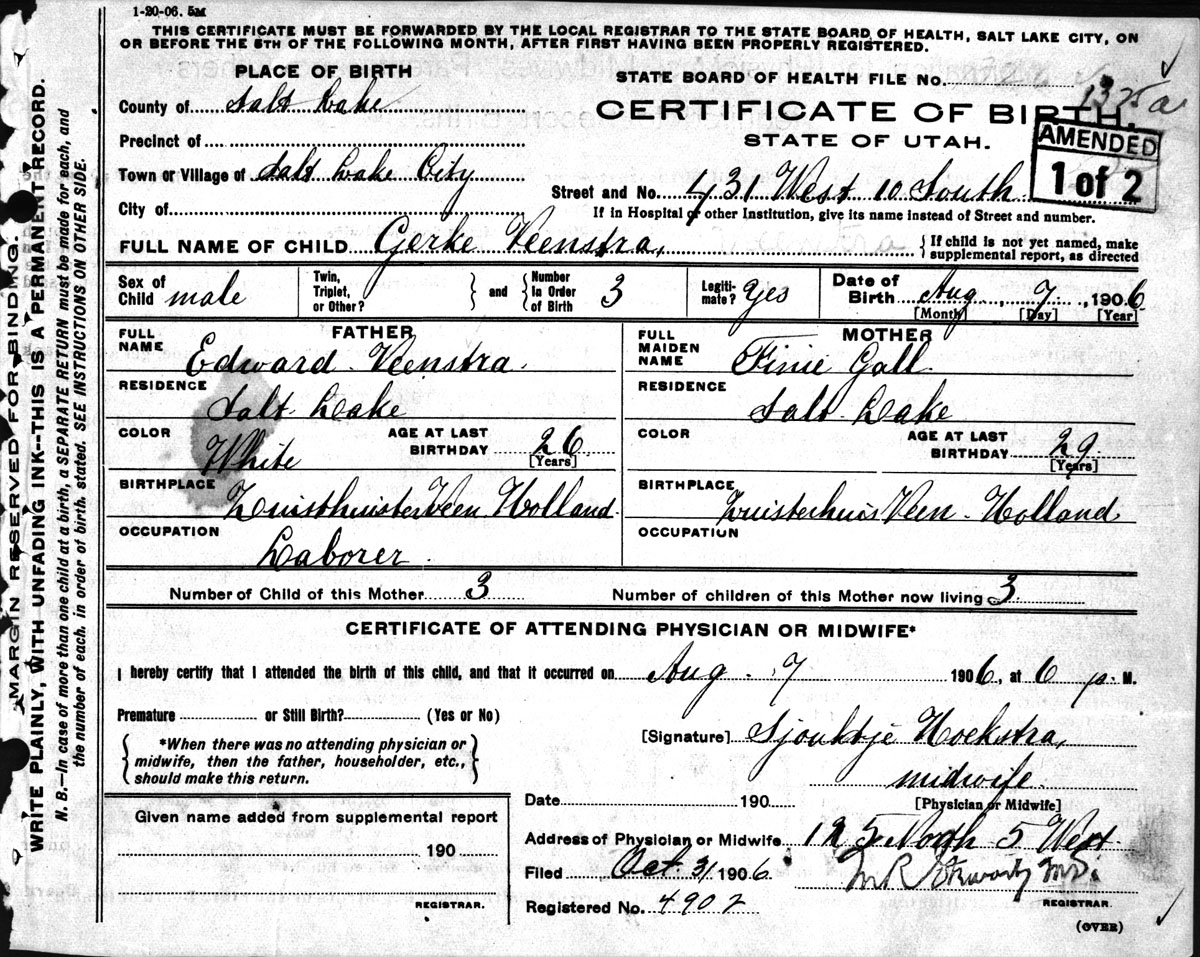 1-20-06. 5M
THIS CERTIFICATE MUST BE FORWARDED BY THE LOCAL REGISTRAR TO THE STATE BOARD OF HEALTH, SALT LAKE CITY, ON
OR BEFORE THE 5TH OF THE FOLLOWING MONTH, AFTER FIRST HAVING BEEN PROPERLY REGISTERED.
PLACE OF BIRTH
STATE BOARD OF HEALTH FILE No.
1325a
County of Salt Lake
CERTIFICATE OF BIRTH.
Precinct of
STATE OF UTAH.
AMENDED
1 of 2
Town or Village of Salt Lake City
Street and No. 431 West 10 South
City of
If in Hospital or other Institution, give its name instead of Street and number.
FULL NAME OF CHILD Gerke Veenstra,
{If child is not yet named, make
supplemental report, as directed
Sex of Child male
Twin, Triplet, or Other?
and
Number in Order of Birth 3
Legitimate? Yes
Date of Birth Aug, 7, 1906
[Month] [Day] [Year]
FATHER
FULL NAME Edward Veenstra.
RESIDENCE Salt Lake
COLOR White
AGE AT LAST BIRTHDAY 26
[Years]
BIRTHPLACE Zuisthuisterveen Holland.
OCCUPATION Laborer.
MOTHER
FULL MAIDEN NAME Finie Gall.
RESIDENCE Salt Lake
COLOR
AGE AT LAST BIRTHDAY 29.
[Years]
BIRTHPLACE Zuisterhuis Veen - Holland
OCCUPATION
Number of Child of this Mother 3
Number of children of this Mother now living 3
CERTIFICATE OF ATTENDING PHYSICIAN OR MIDWIFE*
I hereby certify that I attended the birth of this child, and that it occurred on Aug. 7 1906, at 6 p. M.
Premature or Still Birth? (Yes or No)
{*When there was no attending physician or
midwife, then the father, householder, etc.,
should make this return.}
[Signature] Sjouktje Hoekstra,
midwife.
[Physician or Midwife]
Date 190
Given name added from supplemental report
190
REGISTRAR.
Address of Physician or Midwife 125 North 5 West
Filed Oct. 31 1906
M.D.
REGISTRAR.
Registered No. 4902
(OVER)
MARGIN RESERVED FOR BINDING.
WRITE PLAINLY, WITH UNFADING INK--THIS IS A PERMANENT RECORD.
N. B.—In case of more than one child at a birth, a SEPARATE RETURN must be made for each, and
the number of each, in order of birth, stated. SEE INSTRUCTIONS ON OTHER SIDE.